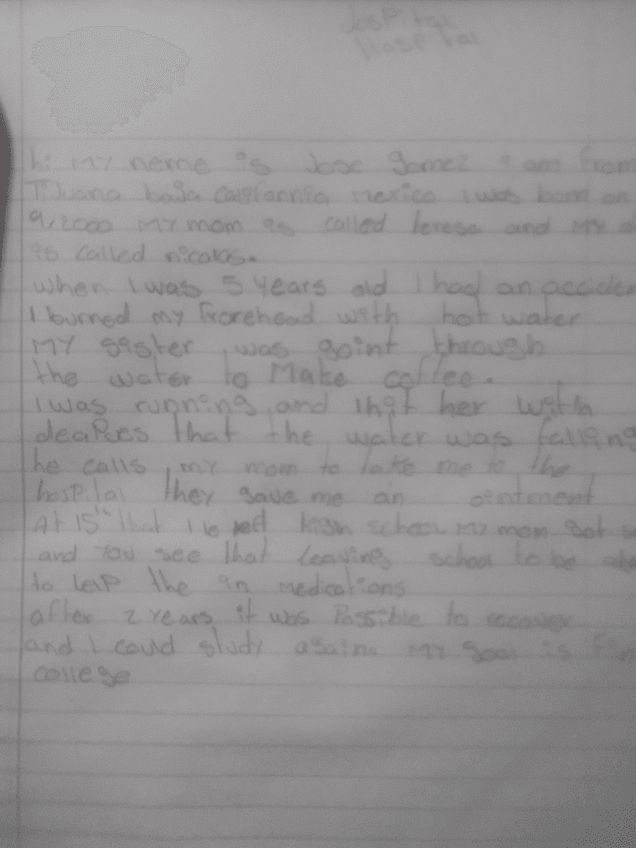 Jospital
Hospital
hi MY neme is Jose gomez I am from
TiJuana baJa California mexico i was born on
9,2000 MY mom is called teresa and MY
is called nicolas.
when I was 5 years old I had an acciden
I burned my Frorehead with hot water
MY sister was goint through
the water to Make coffee.
I was running and I hit her with
that the water was falling
he calls my mom to take me to the
hospital they gave me an ointment
At 15th that I high school MY mom got
and You see that leaving school to be
to the in medications
after 2 years it was Possible to recover
and I could study again. MY goal is
college